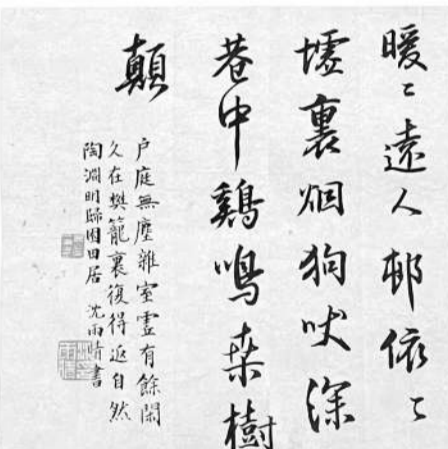 暖〻遠人邨依〻
墟裏烟狗吠深
巷中鷄鳴桑樹
顛
户庭無塵雜室虛有餘閑
久在樊籠裏復得返自然
陶淵明歸園田居 沈雨晴書